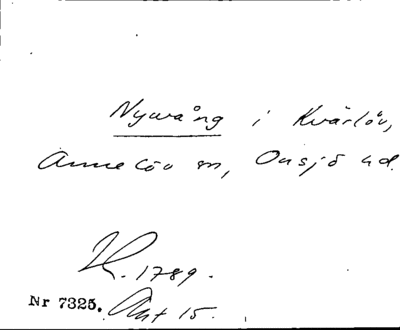 Nyvång i Kvärlöv,
Annelöv sn, Onsjö hd.
K. 1789.
Nr 7325. Akt 15.